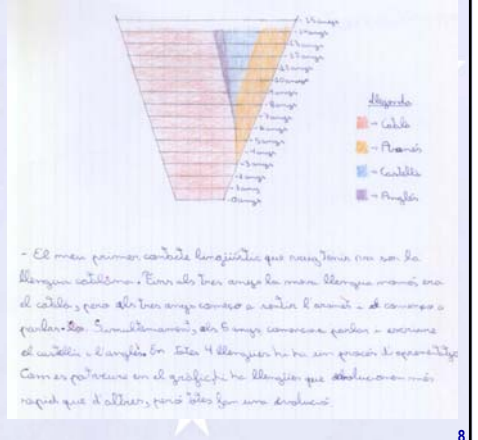 - 15 anys
- 14 anys
- 13 anys
- 12 anys
- 11 anys
- 10 anys
- 9 anys
- 8 anys
- 7 anys
- 6 anys
- 5 anys
- 4 anys
- 3 anys
- 2 anys
- 1 any
- 0 anys
Llegenda
- Català
- Aranés
- Castellà
- Anglés
- El meu primer contacte lingüístic que vaig tenir va ser la
llengua catalana. Fins als tres anys la meva llengua només era
el català, pero als tres anys començo a sentir l'aranés i començo a
parlar-lo. Simultàneament, als 6 anys començo a parlar i escriure
el castellà i l'anglés. En totes 4 llengües hi ha un procés d'aprenentatge.
Com es pot veure en el gràfic, hi ha llengües que evolucionen més
rapid que d'altres, però totes fan una evolució.
8